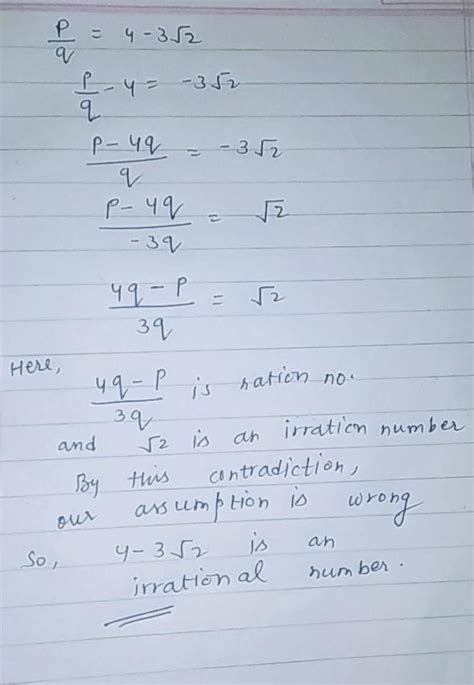 p/q = 4-3√2
p/q - 4 = -3√2
p-4q/q = -3√2
p-4q/-3q = √2
4q-p/3q = √2
Here,
4q-p/3q is ration no.
and √2 is an irration number
By this contradiction,
our assumption is wrong
So, 4-3√2 is an
irrational number.